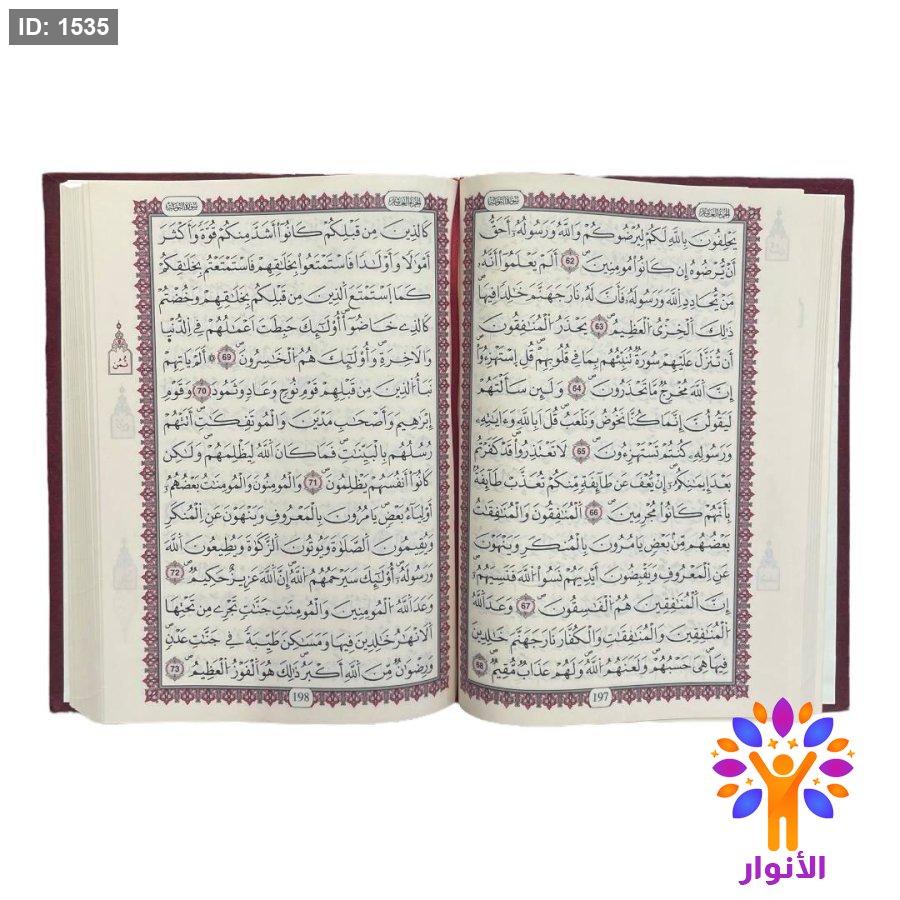 ID: 1535
سورة التوبة
يَحْلِفُونَ بِاللَّهِ لَكُمْ لِيُرْضُوكُمْ وَاللَّهُ وَرَسُولُهُ أَحَقُّ
أَنْ يُرْضُوهُ إِن كَانُوا مُومِنِينَ 62 أَلَمْ يَعْلَمُوا أَنَّهُ
مَنْ يُّحَادِدِ اللَّهَ وَرَسُولَهُ فَأَنَّ لَهُ نَارَ جَهَنَّمَ خَالِدًا فِيهَا
ذَلِكَ الْخِزْيُ الْعَظِيمُ 63 يَحْذَرُ الْمُنَافِقُونَ
أَن تُنَزَّلَ عَلَيْهِمْ سُورَةٌ تُنَبِّئُهُم بِمَا فِي قُلُوبِهِمْ قُلِ اِسْتَهْزِءُوا
إِنَّ اللَّهَ مُخْرِجٌ مَّا تَحْذَرُونَ 64 وَلَئِن سَأَلْتَهُمْ
لَيَقُولُنَّ إِنَّمَا كُنَّا نَخُوضُ وَنَلْعَبُ قُلْ أَبِاللَّهِ وَءَايَاتِهِ
وَرَسُولِهِ كُنتُمْ تَسْتَهْزِءُونَ 65 لَا تَعْتَذِرُوا قَدْ كَفَرْتُم
بَعْدَ إِيمَانِكُمْ إِنْ يُّعْفَ عَن طَائِفَةٍ مِّنكُمْ تُعَذَّبْ طَائِفَةٌ
بِأَنَّهُمْ كَانُوا مُجْرِمِينَ 66 الْمُنَافِقُونَ وَالْمُنَافِقَاتُ
بَعْضُهُم مِّنْ بَعْضٍ يَامُرُونَ بِالْمُنكَرِ وَيَنْهَوْنَ
عَنِ الْمَعْرُوفِ وَيَقْبِضُونَ أَيْدِيَهُمْ نَسُوا اللَّهَ فَنَسِيَهُمْ
إِنَّ الْمُنَافِقِينَ هُمُ الْفَاسِقُونَ 67 وَعَدَ اللَّهُ
الْمُنَافِقِينَ وَالْمُنَافِقَاتِ وَالْكُفَّارَ نَارَ جَهَنَّمَ خَالِدِينَ
فِيهَا هِيَ حَسْبُهُمْ وَلَعَنَهُمُ اللَّهُ وَلَهُمْ عَذَابٌ مُّقِيمٌ 68
197
سورة التوبة
كَالَّذِينَ مِن قَبْلِكُمْ كَانُوا أَشَدَّ مِنكُمْ قُوَّةً وَأَكْثَرَ
أَمْوَالًا وَأَوْلَادًا فَاسْتَمْتَعُوا بِخَلَاقِهِمْ فَاسْتَمْتَعْتُم بِخَلَاقِكُمْ
كَمَا اَسْتَمْتَعَ الَّذِينَ مِن قَبْلِكُم بِخَلَاقِهِمْ وَخُضْتُمْ
كَالَّذِي خَاضُوا أُوْلَائِكَ حَبِطَتْ أَعْمَالُهُمْ فِي الدُّنْيَا
وَالْآخِرَةِ وَأُوْلَائِكَ هُمُ الْخَاسِرُونَ 69 أَلَمْ يَاتِهِمْ
نَبَأُ الَّذِينَ مِن قَبْلِهِمْ قَوْمِ نُوحٍ وَعَادٍ وَثَمُودَ 70 وَقَوْمِ
إِبْرَاهِيمَ وَأَصْحَابِ مَدْيَنَ وَالْمُوتَفِكَاتِ أَتَتْهُمْ
رُسُلُهُم بِالْبَيِّنَاتِ فَمَا كَانَ اللَّهُ لِيَظْلِمَهُمْ وَلَاكِن
كَانُوا أَنفُسَهُمْ يَظْلِمُونَ 71 وَالْمُومِنُونَ وَالْمُومِنَاتُ بَعْضُهُمْ
أَوْلِيَاءُ بَعْضٍ يَامُرُونَ بِالْمَعْرُوفِ وَيَنْهَوْنَ عَنِ الْمُنكَرِ
وَيُقِيمُونَ الصَّلَوٰةَ وَيُوتُونَ الزَّكَوٰةَ وَيُطِيعُونَ اللَّهَ
وَرَسُولَهُ أُوْلَائِكَ سَيَرْحَمُهُمُ اللَّهُ إِنَّ اللَّهَ عَزِيزٌ حَكِيمٌ 72
وَعَدَ اللَّهُ الْمُومِنِينَ وَالْمُومِنَاتِ جَنَّاتٍ تَجْرِي مِن تَحْتِهَا
الْأَنْهَارُ خَالِدِينَ فِيهَا وَمَسَاكِنَ طَيِّبَةً فِي جَنَّاتِ عَدْنٍ
وَرِضْوَانٌ مِّنَ اللَّهِ أَكْبَرُ ذَلِكَ هُوَ الْفَوْزُ الْعَظِيمُ 73
ثمن
198
الأنوار